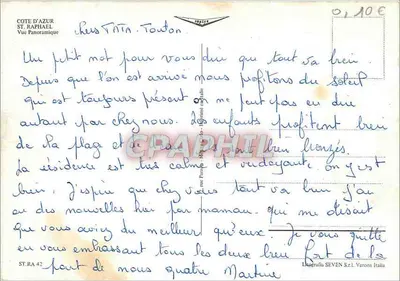 COTE D'AZUR
ST. RAPHAEL
Vue Panoramique
0,10€
chers TATA. Tonton.
Un petit mot pour vous dire que tout va bien.
Depuis que l'on est arrivé nous profitons du soleil
qui est toujours présent on ne peut pas en dire
autant par chez nous. Les enfants profitent bien
de la plage et sont bien bronzés.
La résidence est très calme et verdoyante on y est
bien. J'espère que chez vous tout va bien j'ai
eu des nouvelles hier par maman. qui me disait
que vous aviez du meilleur qu'eux. Je vous quitte
en vous embrassant tous les deux bien fort de la
part de nous quatre Martine
CPAPHIL
ST.RA 42
SEVEN S.r.l. Verona Italia